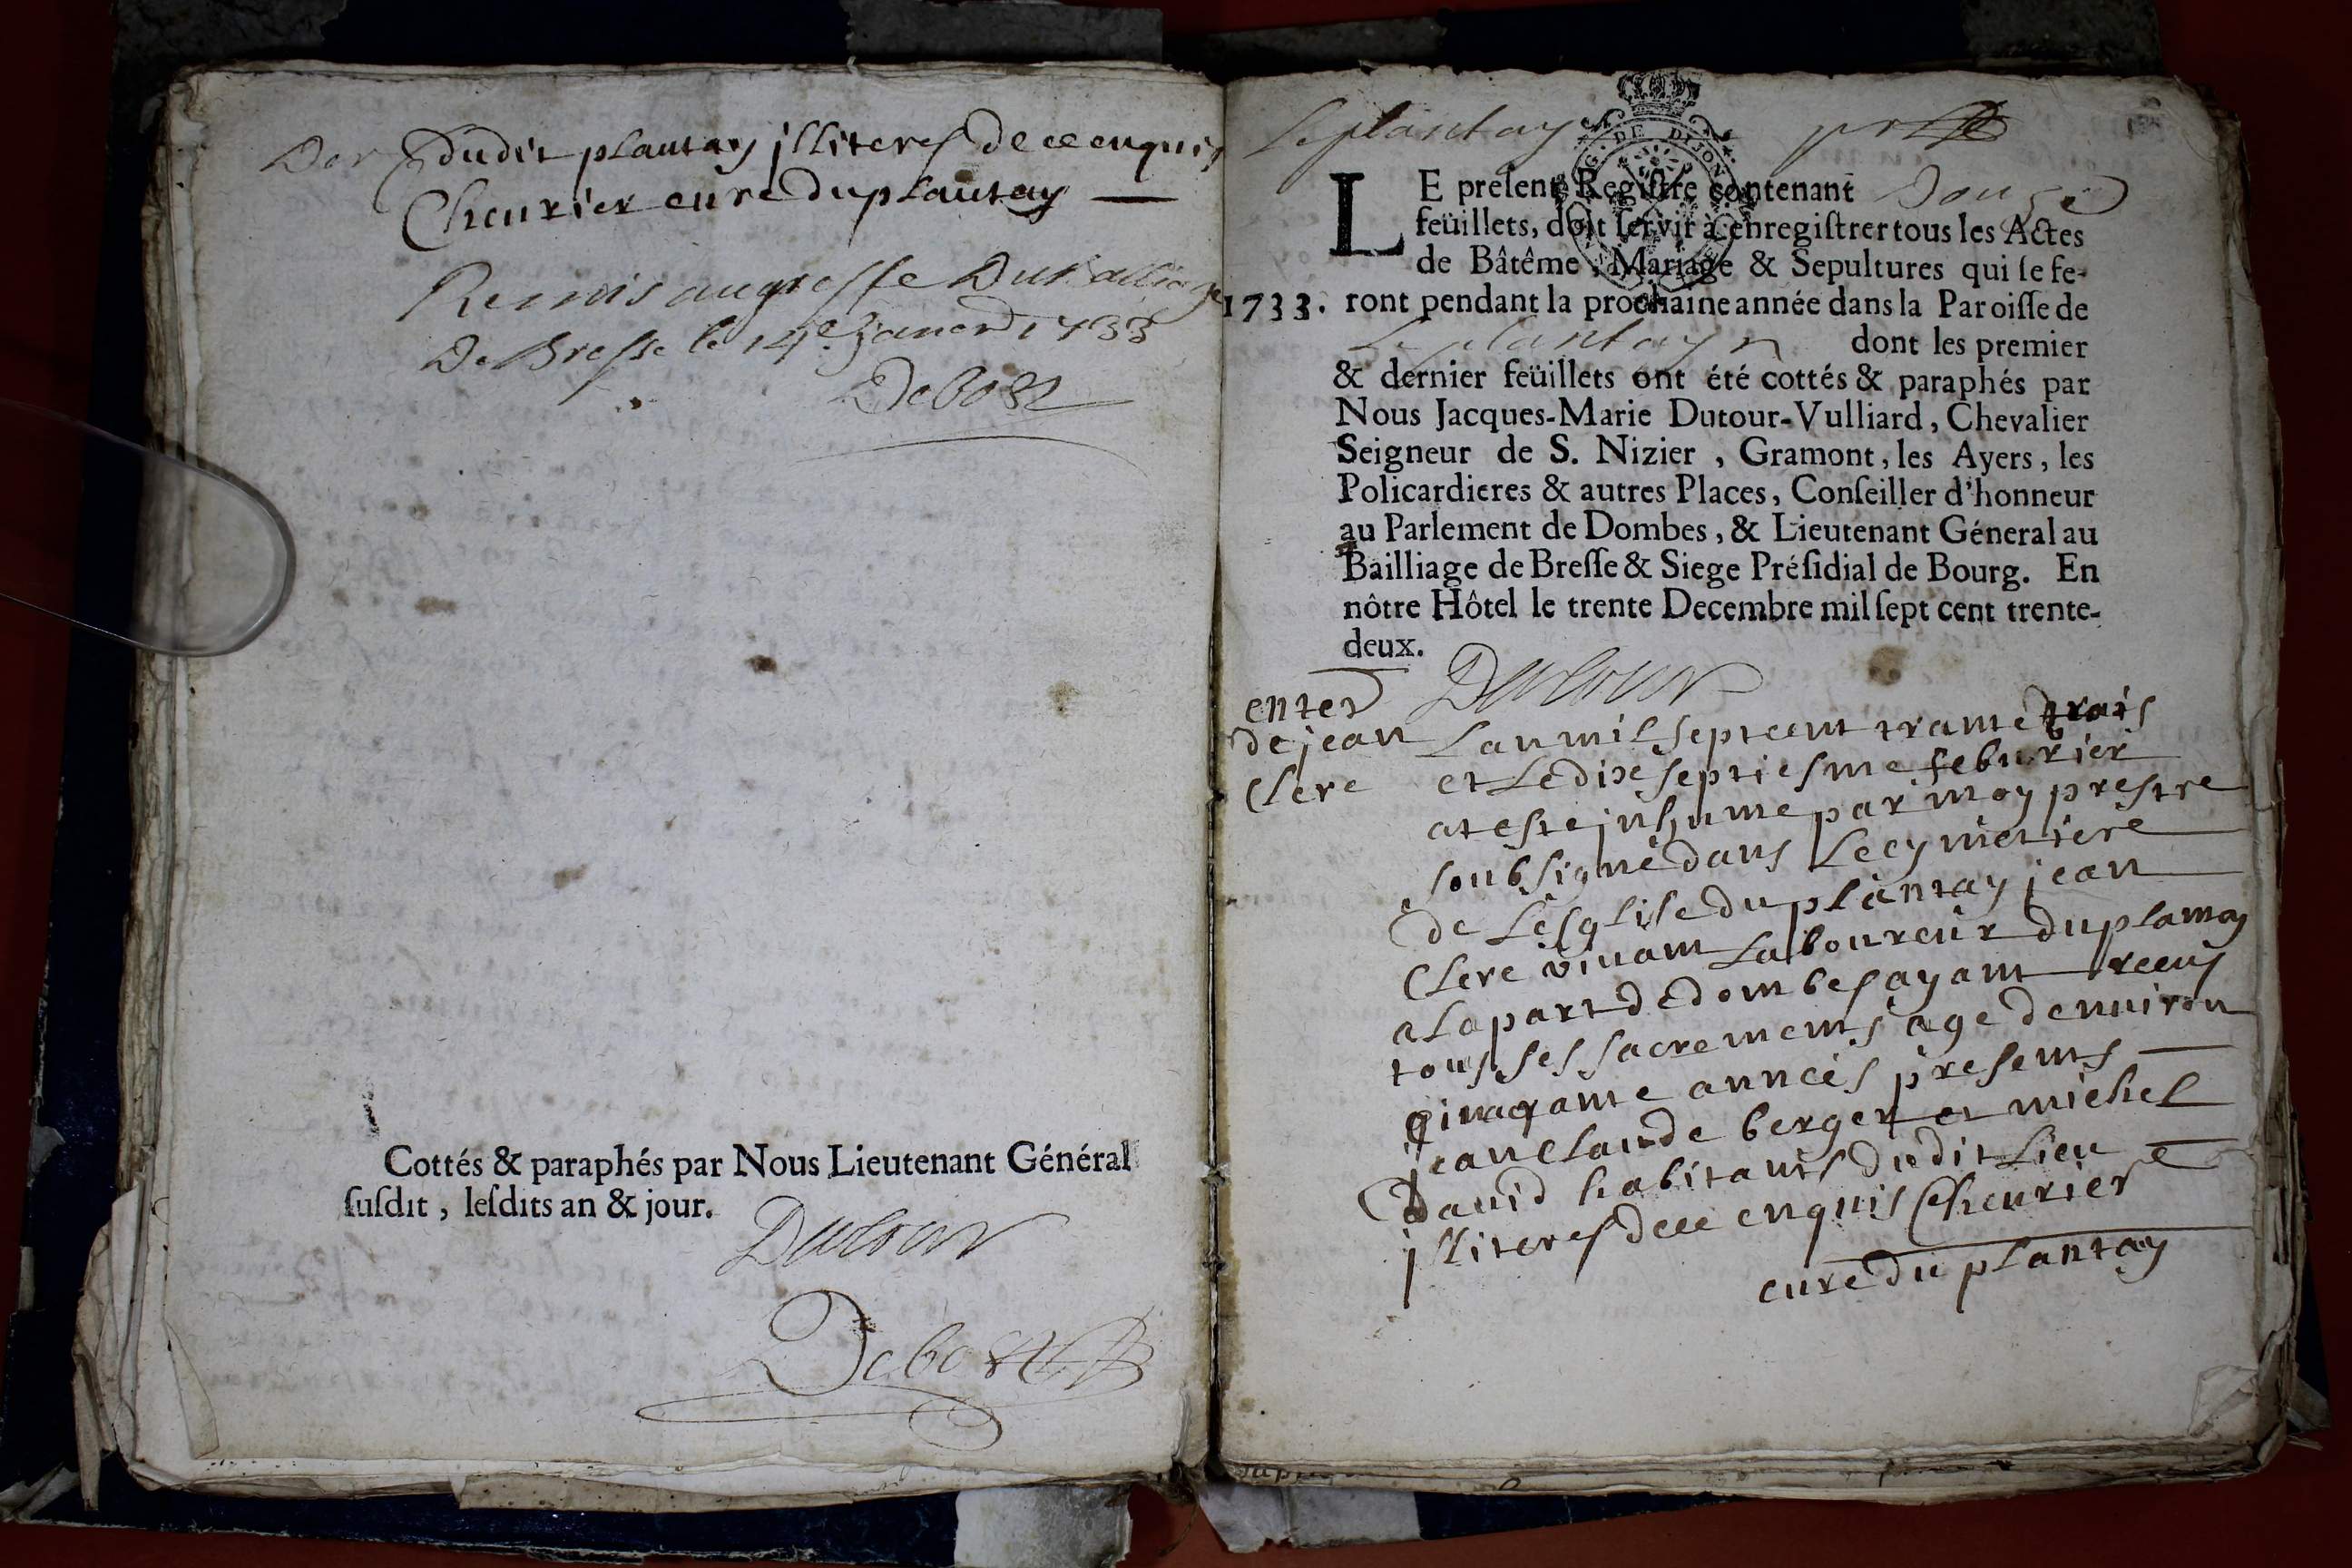 Der dudit plantay jlliteres de ce enquis
Cheurier cure du plantay
Remis au greffe Du Balliage
De Bresse le 14e Janer 1733
Debost
Cottés & paraphés par Nous Lieutenant Général
ſuſdit, leſdits an & jour.
Dutour
Debost
Le plantay
G. DE DIJON
LE preſent Regiſtre contenant Douze
feüillets, doit ſervir à enregiſtrer tous les Actes
de Bâtême, Mariage & Sepultures qui ſe fe-
1733. ront pendant la prochaine année dans la Paroiſſe de
Le plantay dont les premier
& dernier feüillets ont été cottés & paraphés par
Nous Jacques-Marie Dutour-Vulliard, Chevalier
Seigneur de S. Nizier, Gramont, les Ayers, les
Policardieres & autres Places, Conſeiller d'honneur
au Parlement de Dombes, & Lieutenant Géneral au
Bailliage de Breſſe & Siege Préſidial de Bourg. En
nôtre Hôtel le trente Decembre mil ſept cent trente-
deux.
Dutour
enter
de jean
Clere
Lan mil sept cent trante trois
et Le dixe septiesme feburier
at este jnhume par moy prestre
soubsigné dans Le cymetiere
de Lesglise du plantay jean
Clere viuant Laboureur du plantay
a La part de dombes ayant receus
tous ses sacrements age denuiron
cinquante années presents
jean claude berger et michel
Dauid habitants dudit Lieu
jlliteres de ce enquis Cheurier
cure du plantay